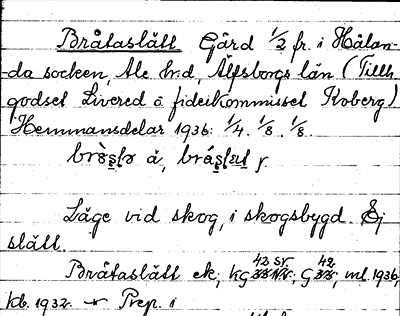 Bråtaslätt Gård 1/2 fr. i Hålan-
da socken, Ale hrd, Älfsborgs län (Tillh.
godset Livered o fideikommisset Koberg)
Hemmansdelar 1936: 1/4. 1/8. 1/8.
å,
Läge vid skog, i skogsbygd. Ej
slätt.
Bråtaslätt ek; KG 42 SV; G 42; ml. 1936,
kb. 1932. Prep. i